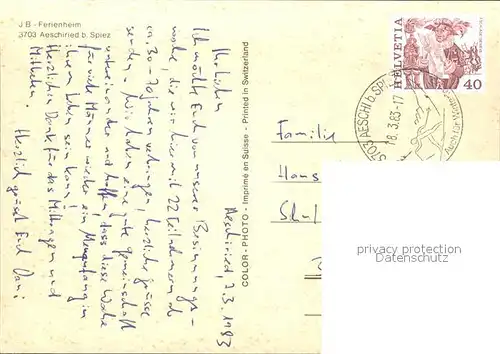 J B - Ferienheim
3703 Aeschiried b. Spiez
Aeschiried, 7.3.1983
Ihr Lieben
Ich möchte Euch von unserer Besinnungs-
woche, die wir hier mit 22 Teilnehmern ab
ca. 30-70 Jahren verbringen, herzliche Grüsse
senden. Wir haben eine gute Gemeinschaft
untereinander und hoffen, dass diese Woche
für viele Männer wieder ein Neuanfang in
ihrem Leben sein kann!
Herzlichen Dank für das Mittragen und
Mithelfen. Herzlich grüsst Euch
COLOR-PHOTO - Imprimé en Suisse - Printed in Switzerland
HELVETIA
40
3703 AESCHI b. SPIEZ
18.3.83-17
Familie
Hans
privacy protection
Datenschutz